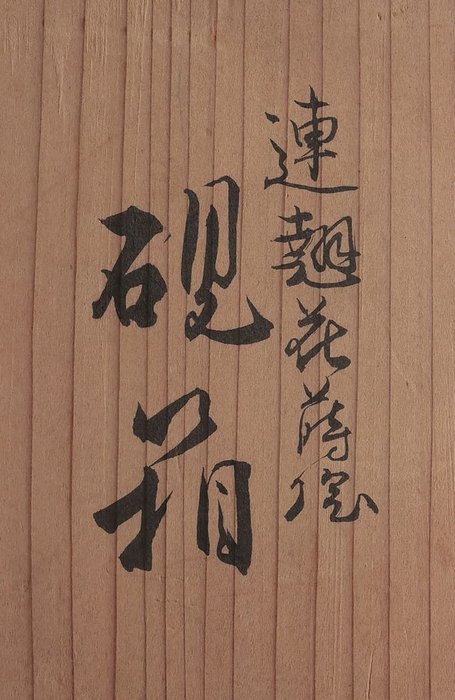 連翹花蒔絵
硯箱